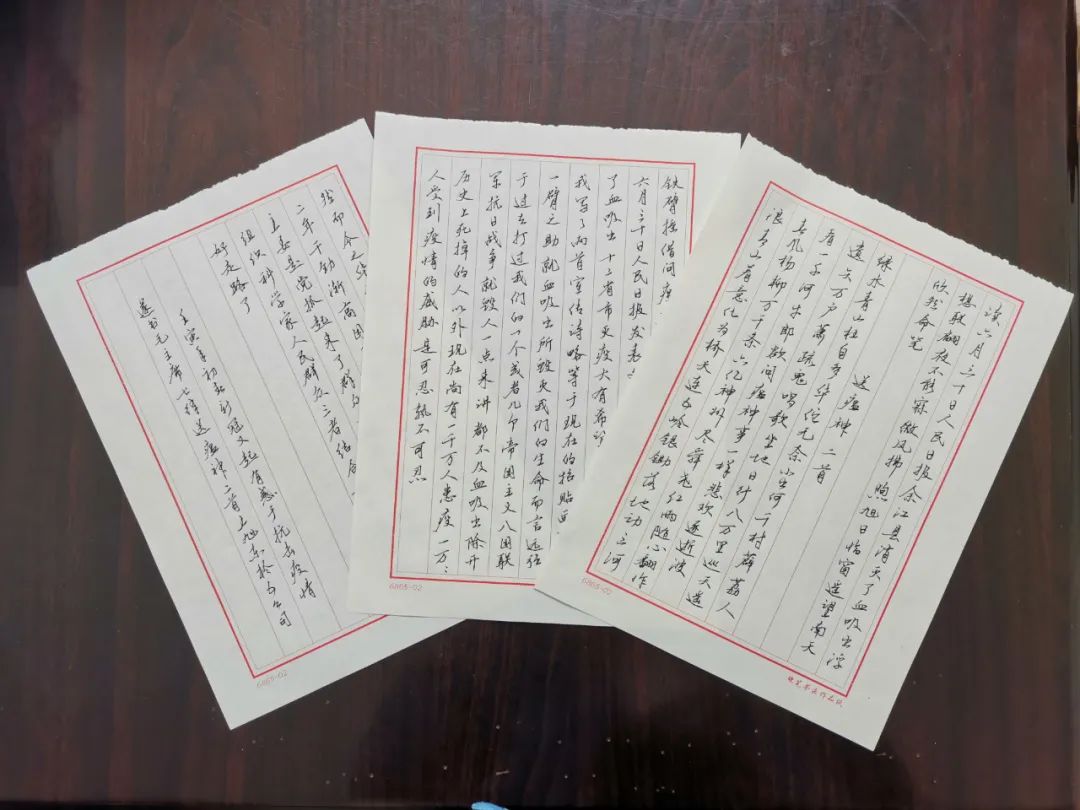 读六月三十日人民日报余江县消灭了血吸虫浮
想联翩夜不能寐微风拂煦旭日临窗遥望南天
欣然命笔
送瘟神二首
绿水青山枉自多华佗无奈小虫何千村薜荔人
遗矢万户萧疏鬼唱歌坐地日行八万里巡天遥
看一千河牛郎欲问瘟神事一样悲欢逐逝波
春风杨柳万千条六亿神州尽舜尧红雨随心翻作
浪青山着意化为桥天连五岭银锄落地动三河
铁臂摇借问瘟
六月三十日人民日报发表
了血吸虫十二省市灭疫大有希望
我写了两首宣传诗略等于现在的招贴画
一臂之助就血吸虫所毁灭我们的生命而言远强
于过去打过我们的一个或者几个帝国主义八国联
军抗日战争就毁人一点来讲都不及血吸虫除开
历史上死掉的人以外现在尚有一千万人患疫一万
人受到疫情的威胁是可忍孰不可忍
然而今之华
二年干劲渐高因
主要是党抓起来了群众
组织科学家人民群众三者结合
好走路了
壬寅年初新冠又起有感于抗击疫情
遂书毛主席七律送瘟神二首
6865-02
6865-02
6865-02